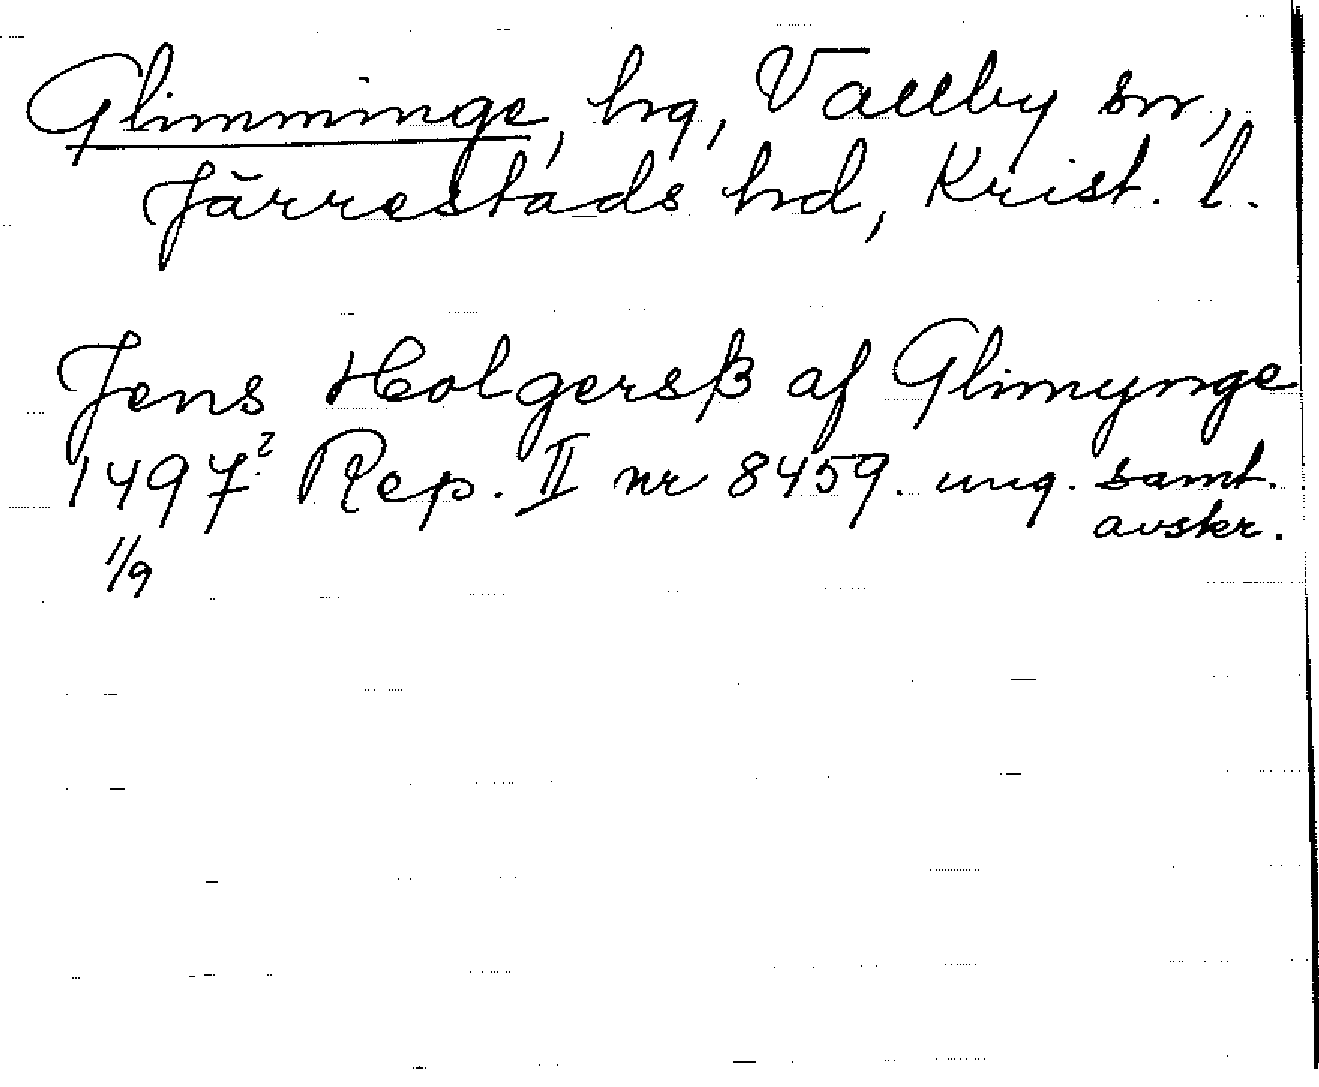 Glimminge, hg, Vallby sn,
Järrestads hd, Krist. l.
Jens Holgersß af Glimynge
1497? Rep. II nr 8459. ung. samt.
avskr.
1/9